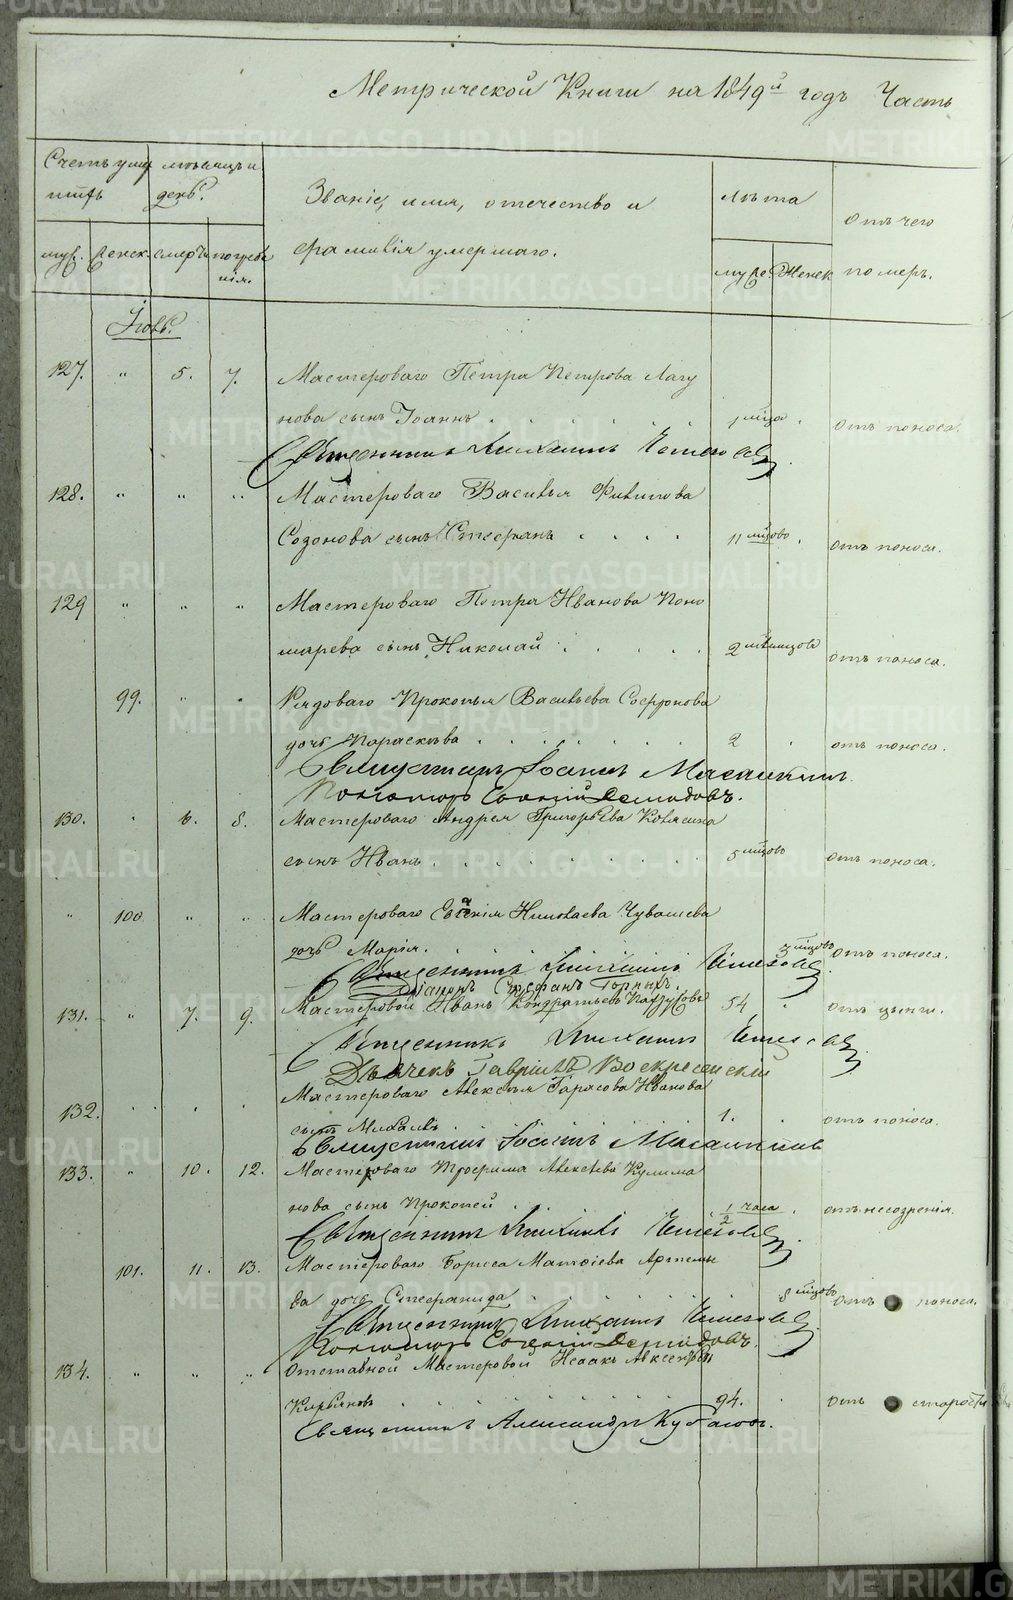 Метрической Книги на 1849й годъ Часть
Счетъ умер мѣсяцъ и
шихъ день.
Званіе, имя, отечество и
фамилія умершаго.
лѣта
отъ чего
померъ.
муж. женск. смерти погребе
нія.
муже Женск
Іюль.
127. " 5. 7. Мастероваго Петра Петрова Лагу
нова сынъ Іоаннъ 1 мѣца отъ поноса.
Священникъ Михаилъ
128. " " " Мастероваго Василья Филипова
Созонова сынъ Стефанъ 11 мцовъ отъ поноса.
129 " " " Мастероваго Петра Иванова Поно
марева сынъ Николай 2 мѣсяцовъ отъ поноса.
99. " " Рядоваго Прокопья Васильева Софронова
дочь Параскева 2 отъ поноса.
Священникъ Іоаннъ
Пономарь Евгеній Демидовъ.
130. " 6. 8. Мастероваго Андрея Григорьева
сынъ Иванъ 5 мцовъ отъ поноса.
" 100. " " Мастероваго Евгенія Николаева Чувашева
дочь Марія. 3 мцовъ отъ поноса.
Священникъ Михаилъ
Діаконъ Стефанъ Горныхъ.
131. " 7. 9. Мастеровой Иванъ Кондратьевъ 54 отъ цынги.
Священникъ Михаилъ
Дьячекъ Гавріилъ Воскресенскій
Мастероваго Алексѣя Тарасова Иванова
132. сынъ Михаилъ 1. отъ поноса.
Священникъ Іоаннъ
133. " 10. 12. Мастероваго Трофима Алексѣева Кулима
нова сынъ Прокопей 1/2 часа отъ несозренія.
Священникъ Михаилъ
101. 11. 13. Мастероваго Бориса Матѳіева Артемье
ва дочь Стефанида 8 мцовъ отъ поноса.
Священникъ Михаилъ
Пономарь Евгеній Демидовъ.
134. " " " Отставной Мастеровой Исаакъ Аксентьевъ
Кирьяновъ 94. отъ старости
Священникъ Александръ
METRIKI.GASO-URAL.RU